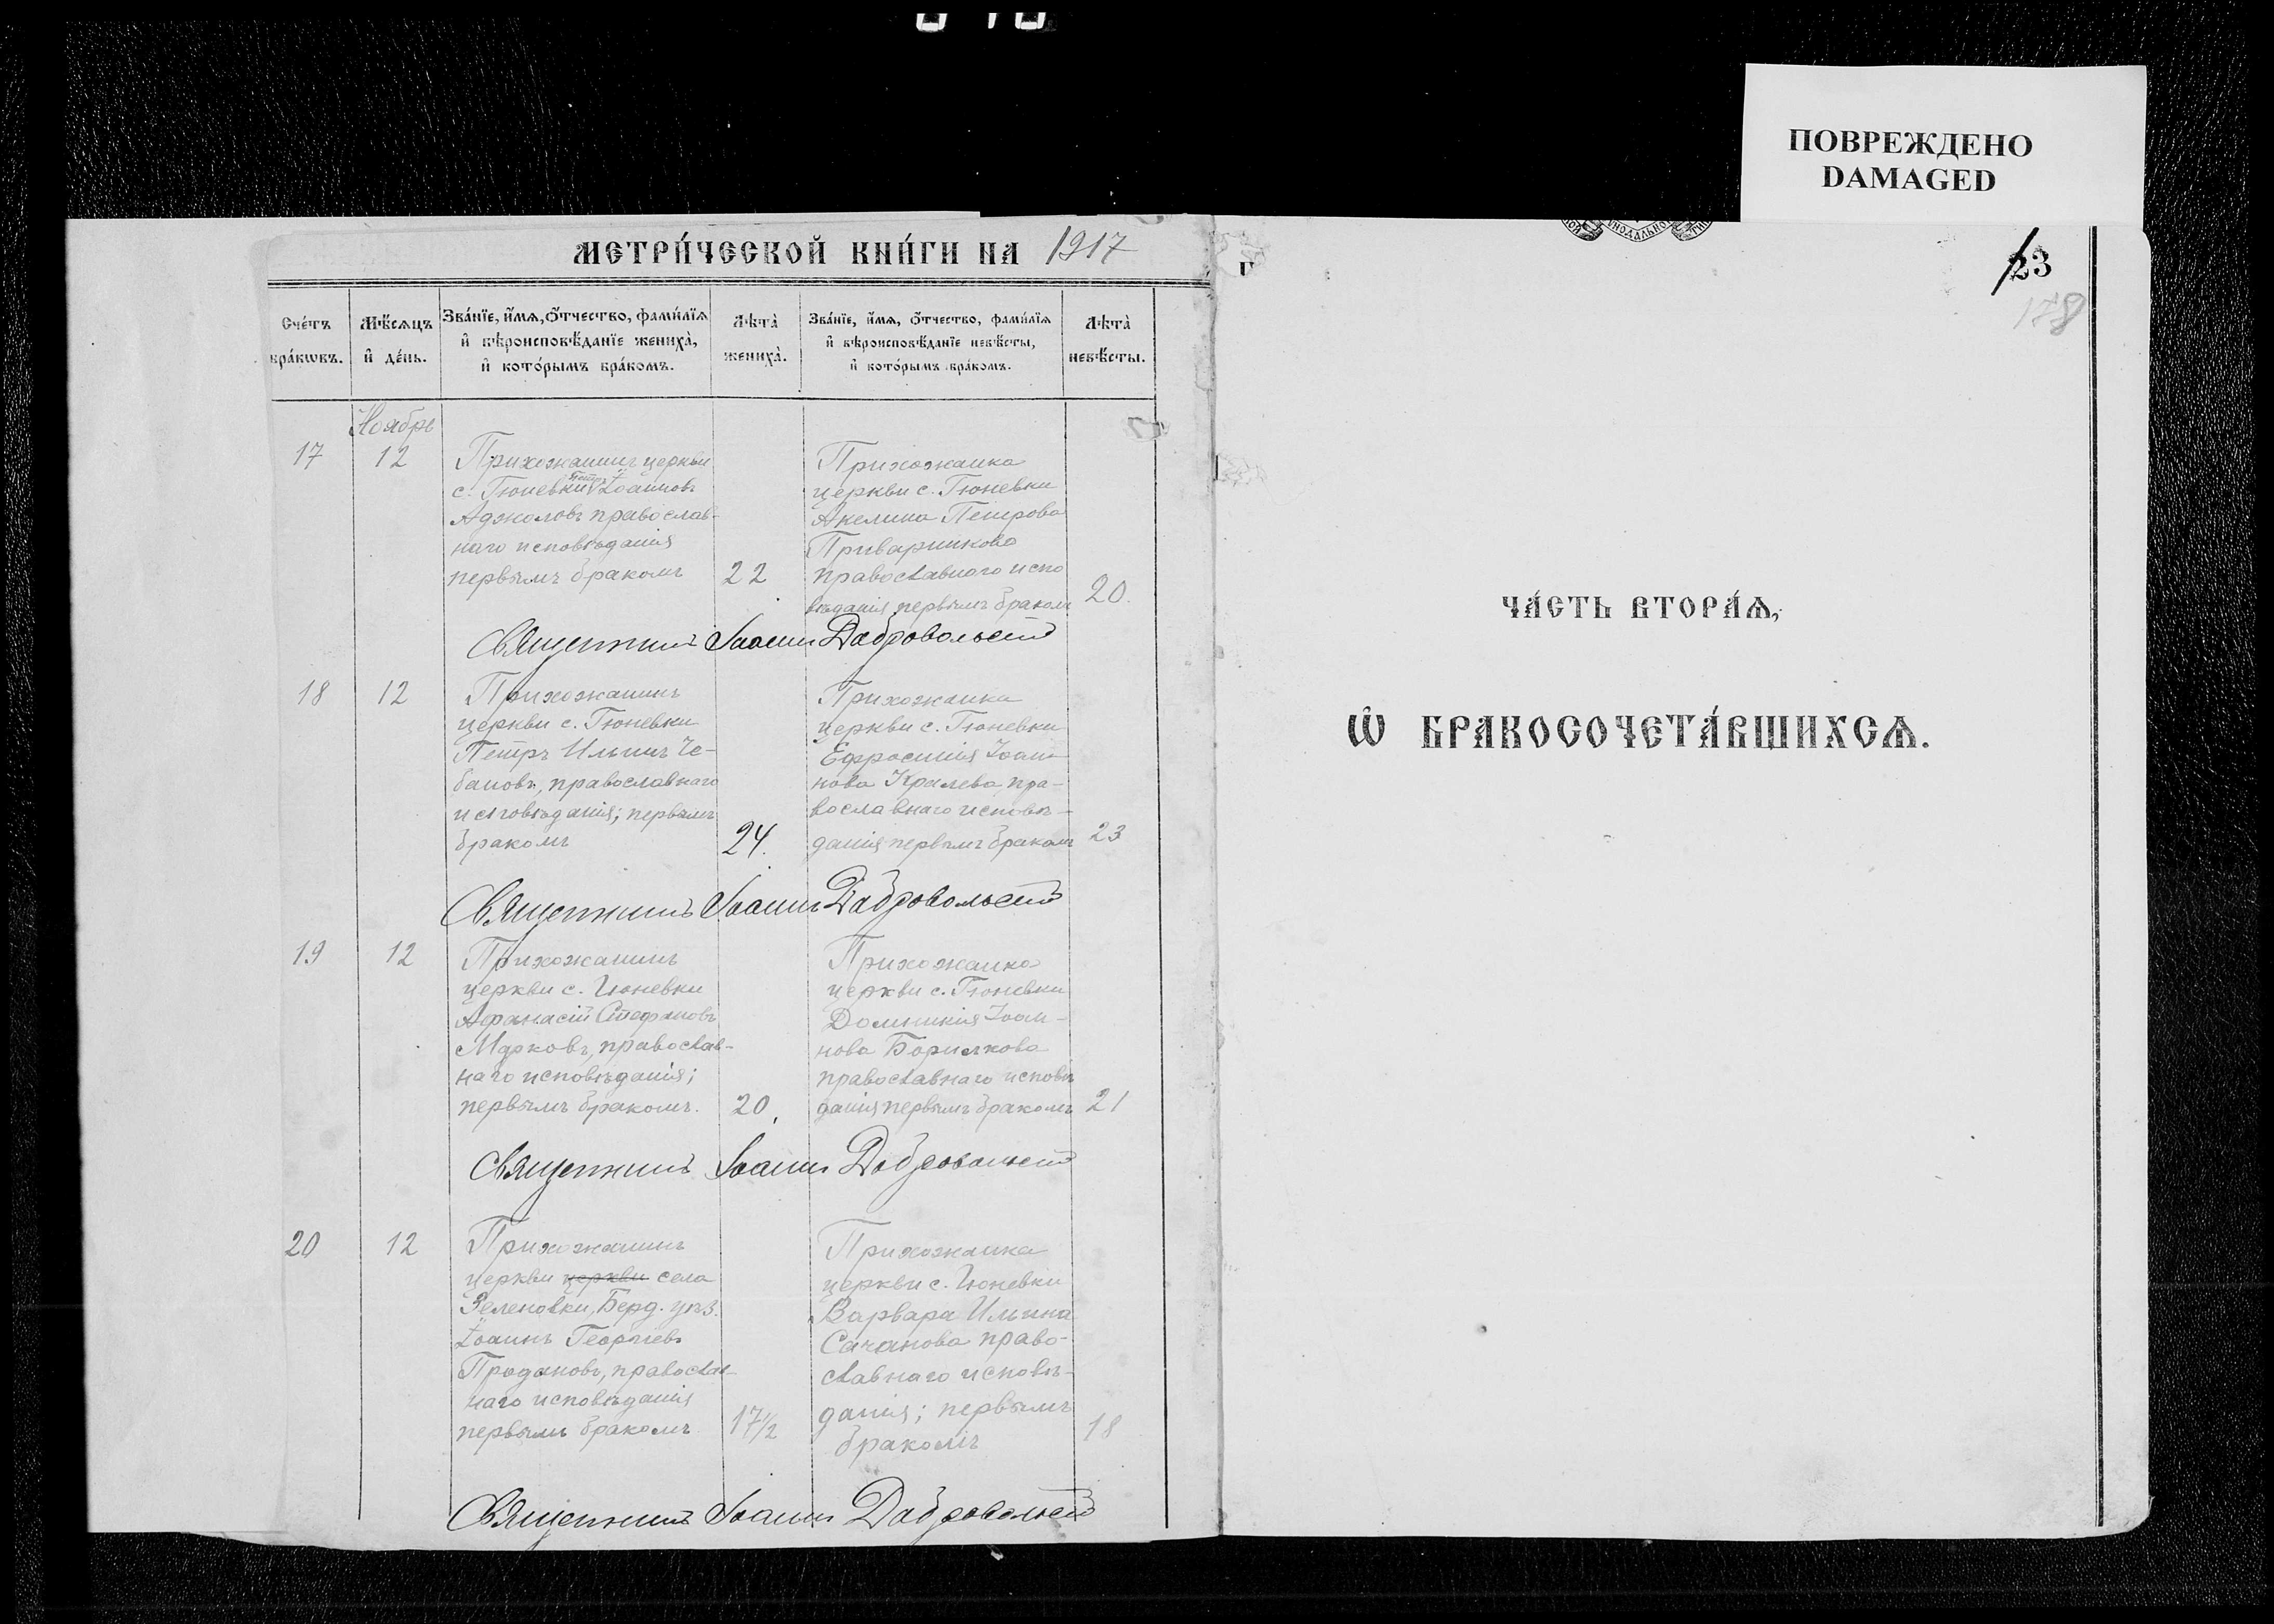 ПОВРЕЖДЕНО
DAMAGED
МЕТРИ́ЧЕСКОЙ КНИ́ГИ НА 1917
Сче́тъ бра́кѡвъ.
Мѣ́сѧцъ и҆ де́нь.
Зва́нїе, и҆́мѧ, ѻ҆́тчество, фами́лїѧ и҆ вѣроисповѣ́данїе жениха̀, и҆ кото́рымъ бра́комъ.
Лѣта̀ жениха̀.
Зва́нїе, и҆́мѧ, ѻ҆́тчество, фами́лїѧ и҆ вѣроисповѣ́данїе невѣ́сты, и҆ кото́рымъ бра́комъ.
Лѣта̀ невѣ́сты.
Ноябрь
17
12
Прихожанинъ церкви
с. Гюневки Петръ Іоанновъ
Аджоловъ православ-
наго исповѣданія
первымъ бракомъ
22
Прихожанка
церкви с. Гюневки
Акелина Петрова
Приварникова
православнаго испо
вѣданія первымъ бракомъ
20.
Священникъ Іоаннъ Добровольскій
18
12
Прихожанинъ
церкви с. Гюневки
Петръ Ильинъ Че-
бановъ, православнаго
исповѣданія; первымъ
бракомъ
24.
Прихожанка
церкви с. Гюневки
Ефросинія Іоан-
нова Кралева, пра-
вославнаго исповѣ-
данія первымъ бракомъ
23
Священникъ Іоаннъ Добровольскій
19
12
Прихожанинъ
церкви с. Гюневки
Афанасій Стефановъ
Марковъ, православ-
наго исповѣданія;
первымъ бракомъ.
20.
Прихожанка
церкви с. Гюневки
Домникія Іоан-
нова Борилкова
православнаго исповѣ
данія первымъ бракомъ
21
Священникъ Іоаннъ Добровольскій
20
12
Прихожанинъ
церкви церкви села
Зеленовки, Берд. уѣз.
Іоаннъ Георгіевъ
Продановъ, православ-
наго исповѣданія
первымъ бракомъ
17½
Прихожанка
церкви с. Гюневки
Варвара Ильина
Сачанова право-
славнаго исповѣ-
данія; первымъ
бракомъ
18
Священникъ Іоаннъ Добровольскій
23
178
ЧА́СТЬ ВТОРА́Ѧ,
Ѽ БРАКОСОЧЕТА́ВШИХСѦ.